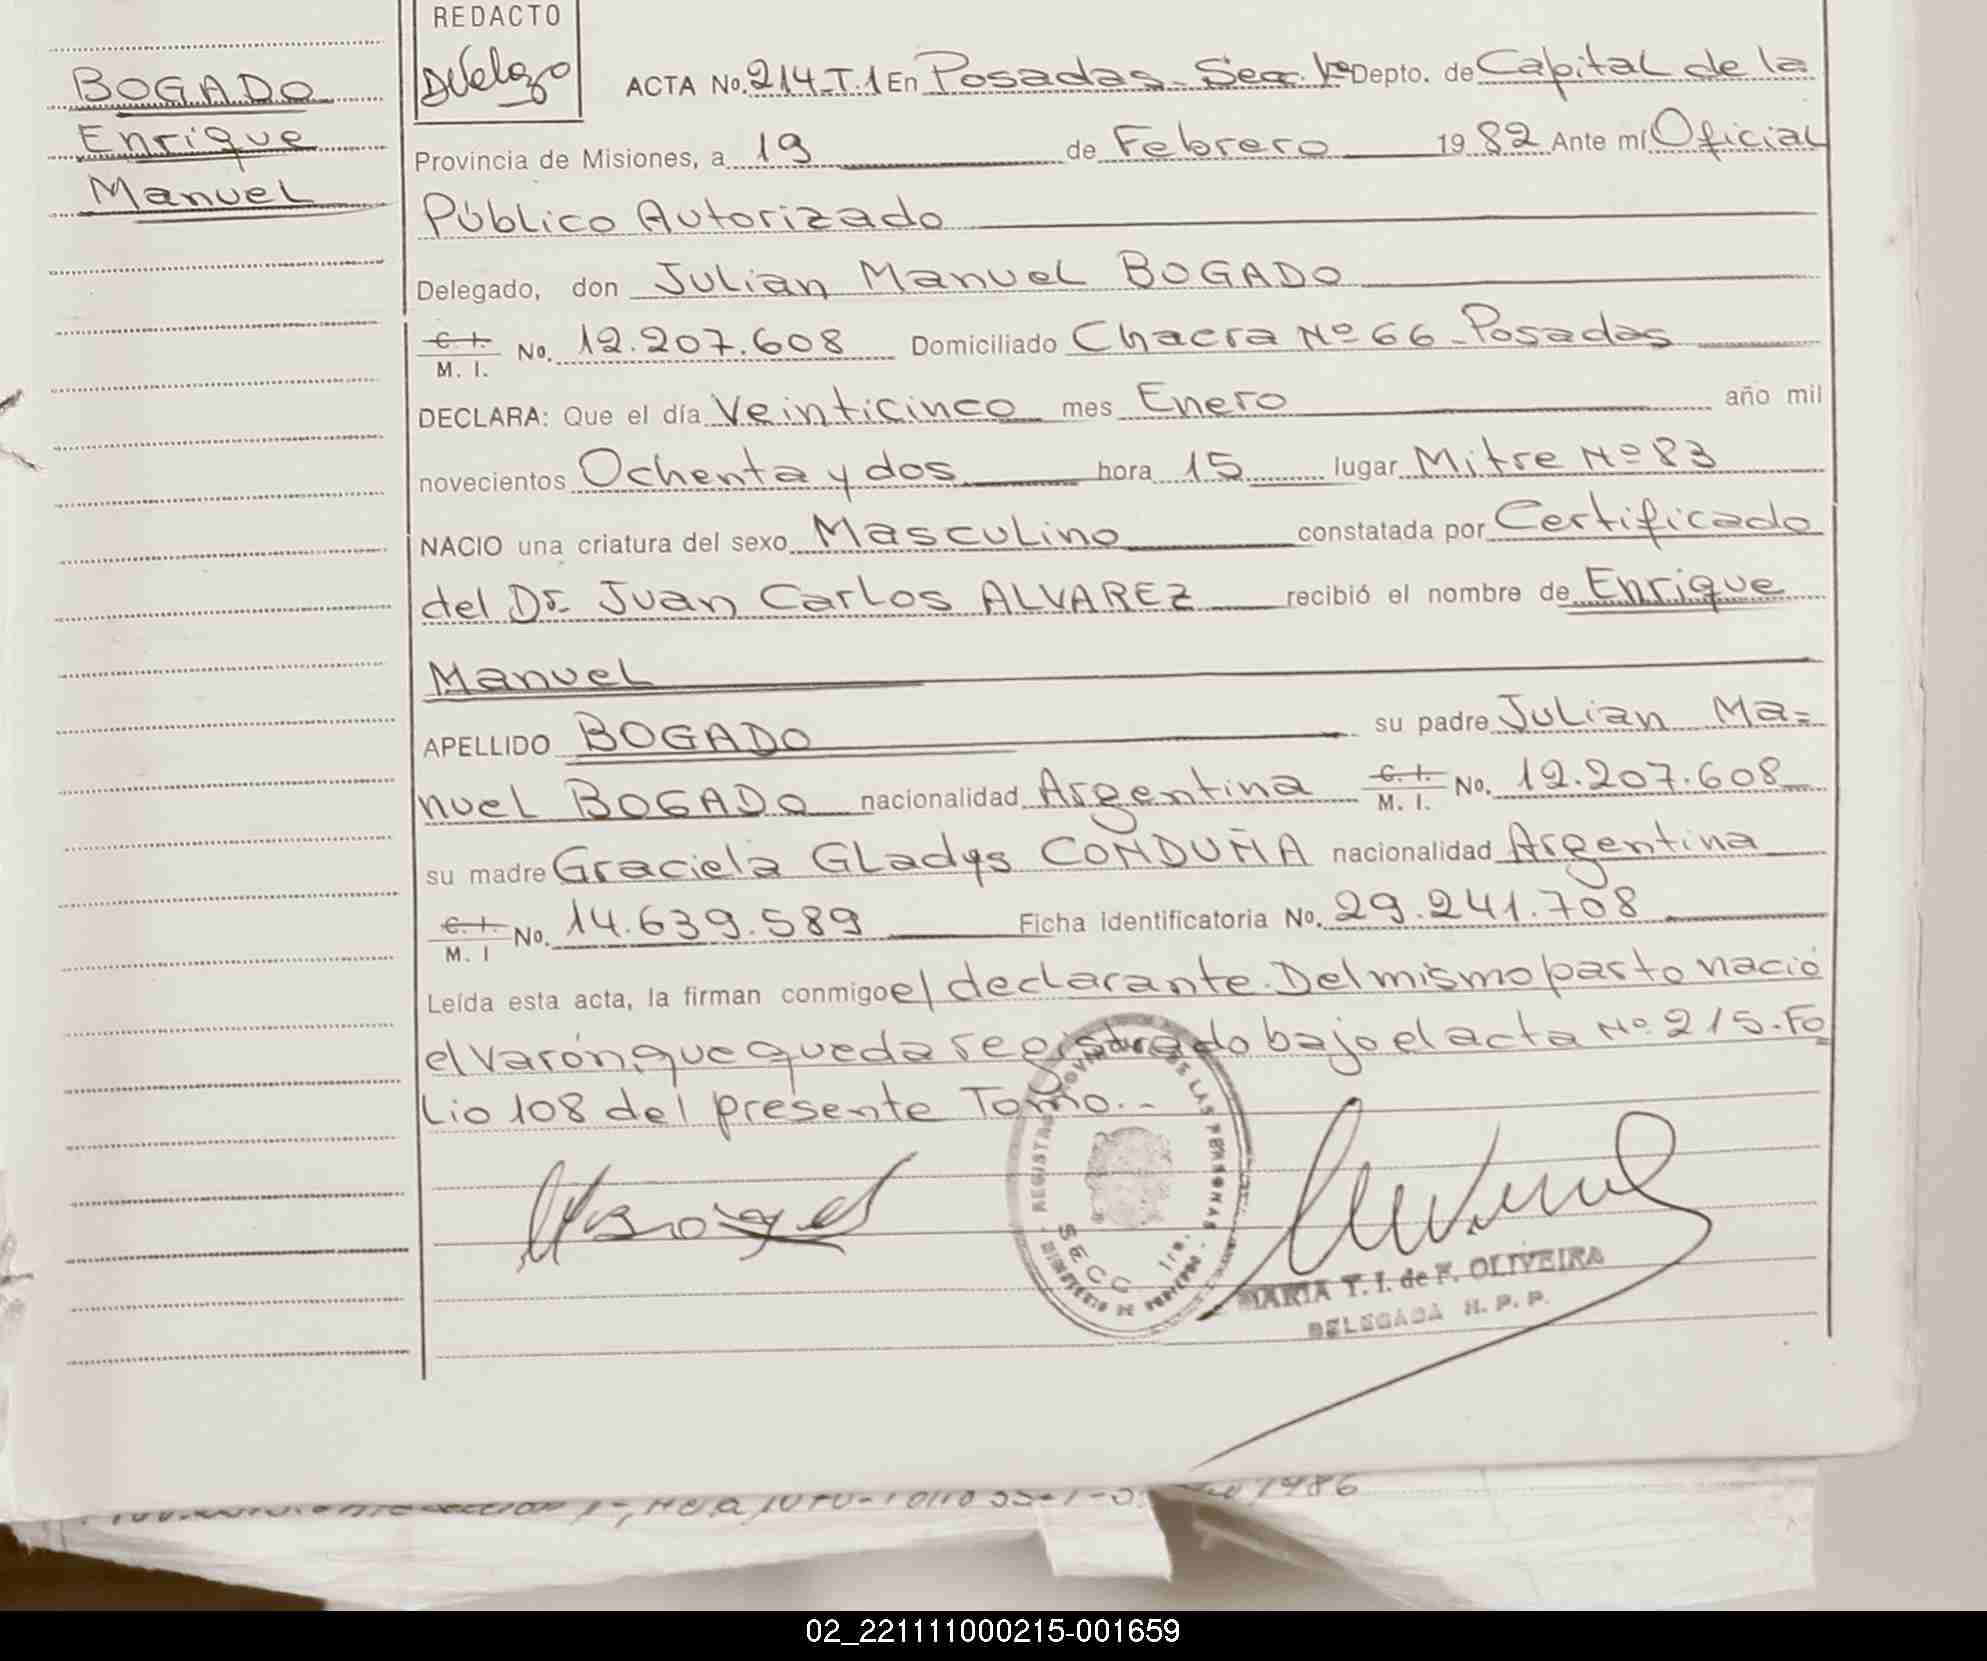 REDACTO
BOGADO
Enrique
Manuel
ACTA No. 214-T.1 En Posadas - Secc. 1º Depto. de Capital de la
Provincia de Misiones, a 19 de Febrero 1982 Ante mí Oficial
Público Autorizado
Delegado, don Julian Manuel BOGADO
C. I. M. I. No. 12.207.608 Domiciliado Chacra Nº 66 - Posadas
DECLARA: Que el día Veinticinco mes Enero año mil
novecientos Ochenta y dos hora 15 lugar Mitre Nº 83
NACIO una criatura del sexo Masculino constatada por Certificado
del Dr. Juan Carlos ALVAREZ recibió el nombre de Enrique
Manuel
APELLIDO BOGADO su padre Julian Ma=
nuel BOGADO nacionalidad Argentina C. I. M. I. No. 12.207.608
su madre Graciela Gladys CONDUÑA nacionalidad Argentina
C. I. M. I No. 14.639.589 Ficha identificatoria No. 29.241.708
Leída esta acta, la firman conmigo el declarante. Del mismo parto nació
el varón, que queda registrado bajo el acta Nº 215. Fo
lio 108 del presente Tomo.-
SECC 1ra.
MARIA T. I. de F. OLIVEIRA
DELEGADA R. P. P.
1986
02_221111000215-001659